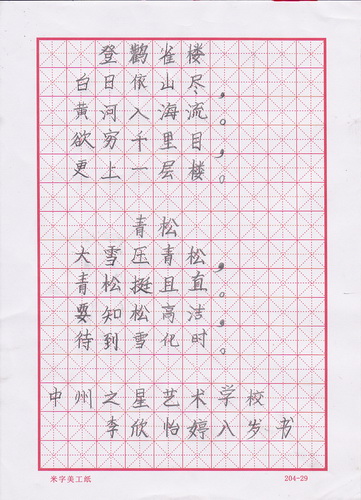 登鹳雀楼
白日依山尽，
黄河入海流。
欲穷千里目，
更上一层楼。
青松
大雪压青松，
青松挺且直。
要知松高洁，
待到雪化时。
中州之星艺术学校
李欣怡婷八岁书
米字美工纸
204-29